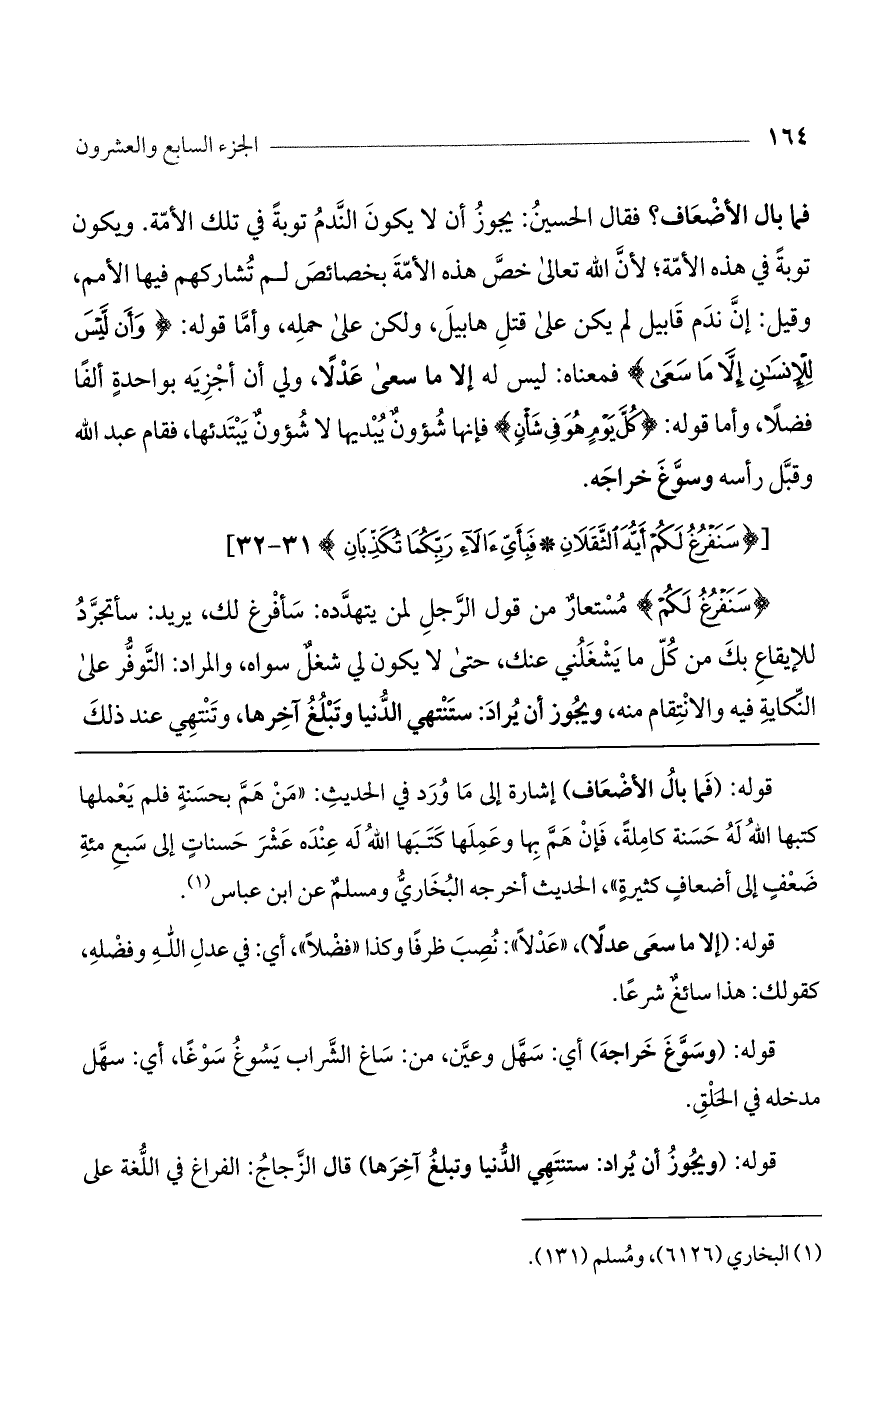 ١٦٤ الجزء السابع والعشرون
فما بال الأضْعَاف؟ فقال الحسينُ: يجوزُ أن لا يكونَ النَّدمُ توبةً في تلك الأمّة. ويكون
توبةً في هذه الأمّة؛ لأنَّ الله تعالىٰ خصَّ هذه الأمّةَ بخصائصَ لـم تُشاركهم فيها الأمم،
وقيل: إنَّ ندَم قَابيل لم يكن علىٰ قتلِ هابيلَ، ولكن علىٰ حملِه، وأمَّا قوله: ﴿ وَأَن لَّيْسَ
لِلْإِنسَٰنِ إِلَّا مَا سَعَىٰ ﴾ فمعناه: ليس له إلا ما سعىٰ عَدْلًا، ولي أن أجْزِيَه بواحدةٍ ألفًا
فضلًا، وأما قوله: ﴿كُلَّ يَوْمٍ هُوَ فِي شَأْنٍ﴾ فإنها شُؤونٌ يُبْديها لا شُؤونٌ يَبْتَدئها، فقام عبد الله
وقبَّل رأسه وسوَّغَ خراجَه.
[﴿سَنَفْرُغُ لَكُمْ أَيُّهَ ٱلثَّقَلَانِ * فَبِأَيِّ ءَالَآءِ رَبِّكُمَا تُكَذِّبَانِ ﴾ ٣١-٣٢]
﴿سَنَفْرُغُ لَكُمْ﴾ مُسْتعارٌ من قول الرَّجلِ لمن يتهدَّده: سَأفْرغ لك، يريد: سأتجرَّدُ
للإيقاعِ بكَ من كُلّ ما يَشْغَلُني عنك، حتىٰ لا يكون لي شغلٌ سواه، والمراد: التَّوفُّر علىٰ
النِّكايةِ فيه والانْتِقام منه، ويجُوز أن يُرادَ: ستَنْتهي الدُّنيا وتَبْلُغُ آخِرها، وتَنْتهِي عند ذلكَ
قوله: (فَما بالُ الأضْعَاف) إشارة إلى مَا وُرَد في الحديثِ: «مَنْ هَمَّ بحسَنةٍ فلم يَعْملها
كتبها اللهُ لَهُ حَسَنة كاملةً، فَإنْ هَمَّ بِها وعَمِلَها كَتَـبَها اللهُ لَه عِنْدَه عَشْرَ حَسناتٍ إلى سَبعِ مئةِ
ضَعْفٍ إلى أضعافٍ كثيرةٍ»، الحديث أخرجه البُخَاريُّ ومسلمٌ عن ابن عباس(١).
قوله: (إلا ما سعَى عدلًا)، «عَدْلاً»: نُصِبَ ظرفًا وكذا «فضْلاً»، أي: في عدلِ اللّٰـهِ وفضْلهِ،
كقولك: هذا سائغٌ شرعًا.
قوله: (وسَوَّغَ خَراجهَ) أي: سَهَّل وعيَّن، من: سَاغ الشَّراب يَسُوغُ سَوْغًا، أي: سهَّل
مدخله في الحَلْقِ.
قوله: (ويجُوزُ أن يُراد: ستنتَهِي الدُّنيا وتبلغُ آخِرَها) قال الزَّجاجُ: الفراغ في اللُّغة على
(١) البخاري (٦١٢٦)، ومُسلم (١٣١).